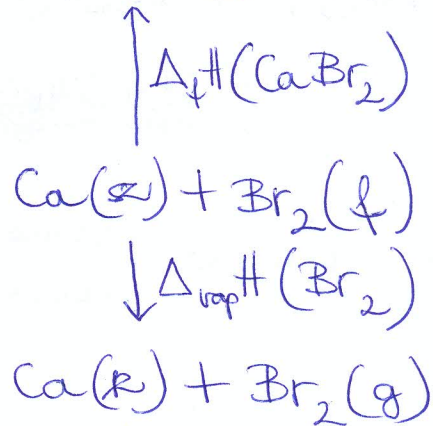 Δ_f H(CaBr₂)
Ca(sz) + Br₂(f)
Δ_vap H(Br₂)
Ca(k) + Br₂(g)